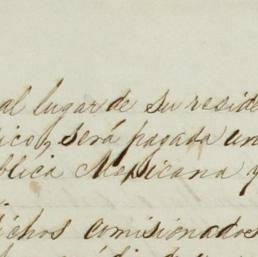 al lugar de su reside
ico, y será pagada un
blica Mexicana y
ichos comisionados